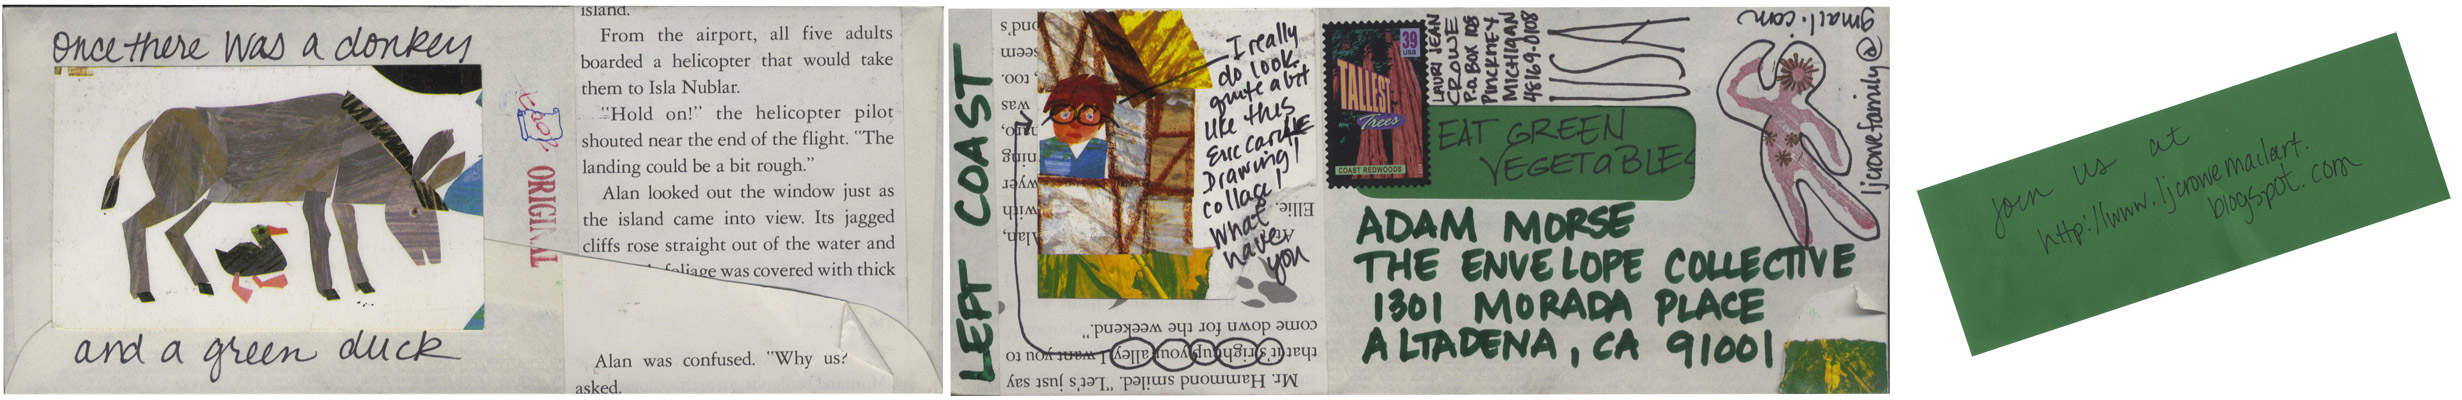 Once there was a donkey
and a green duck
ORIGINAL
island.
From the airport, all five adults
boarded a helicopter that would take
them to Isla Nublar.
"Hold on!" the helicopter pilot
shouted near the end of the flight. "The
landing could be a bit rough."
Alan looked out the window just as
the island came into view. Its jagged
cliffs rose straight out of the water and
foliage was covered with thick
Alan was confused. "Why us?
asked.
LEFT COAST
I really
do look
quite a bit
like this
Eric Carle
Drawing/
collage/
what
have
you
Mr. Hammond smiled. "Let's just say
that it's right up your alley. I want you to
come down for the weekend."
Alan,
with
Ellie.
too.
seem
39
USA
TALLEST
Trees
COAST REDWOODS
LAURI JEAN
CROWE
P.O. BOX 108
PINCKNEY
MICHIGAN
48169-0108
USA
EAT GREEN
VEGETABLES
ljcrowefamily@
gmail.com
ADAM MORSE
THE ENVELOPE COLLECTIVE
1301 MORADA PLACE
ALTADENA, CA 91001
join us at
http://www.ljcrowemailart.
blogspot.com